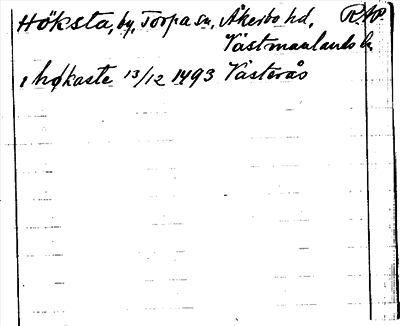 Höksta, by, Torpa sn, Åkerbo hd,
Västmanlands l.
i høkaste 13/12 1493 Västerås